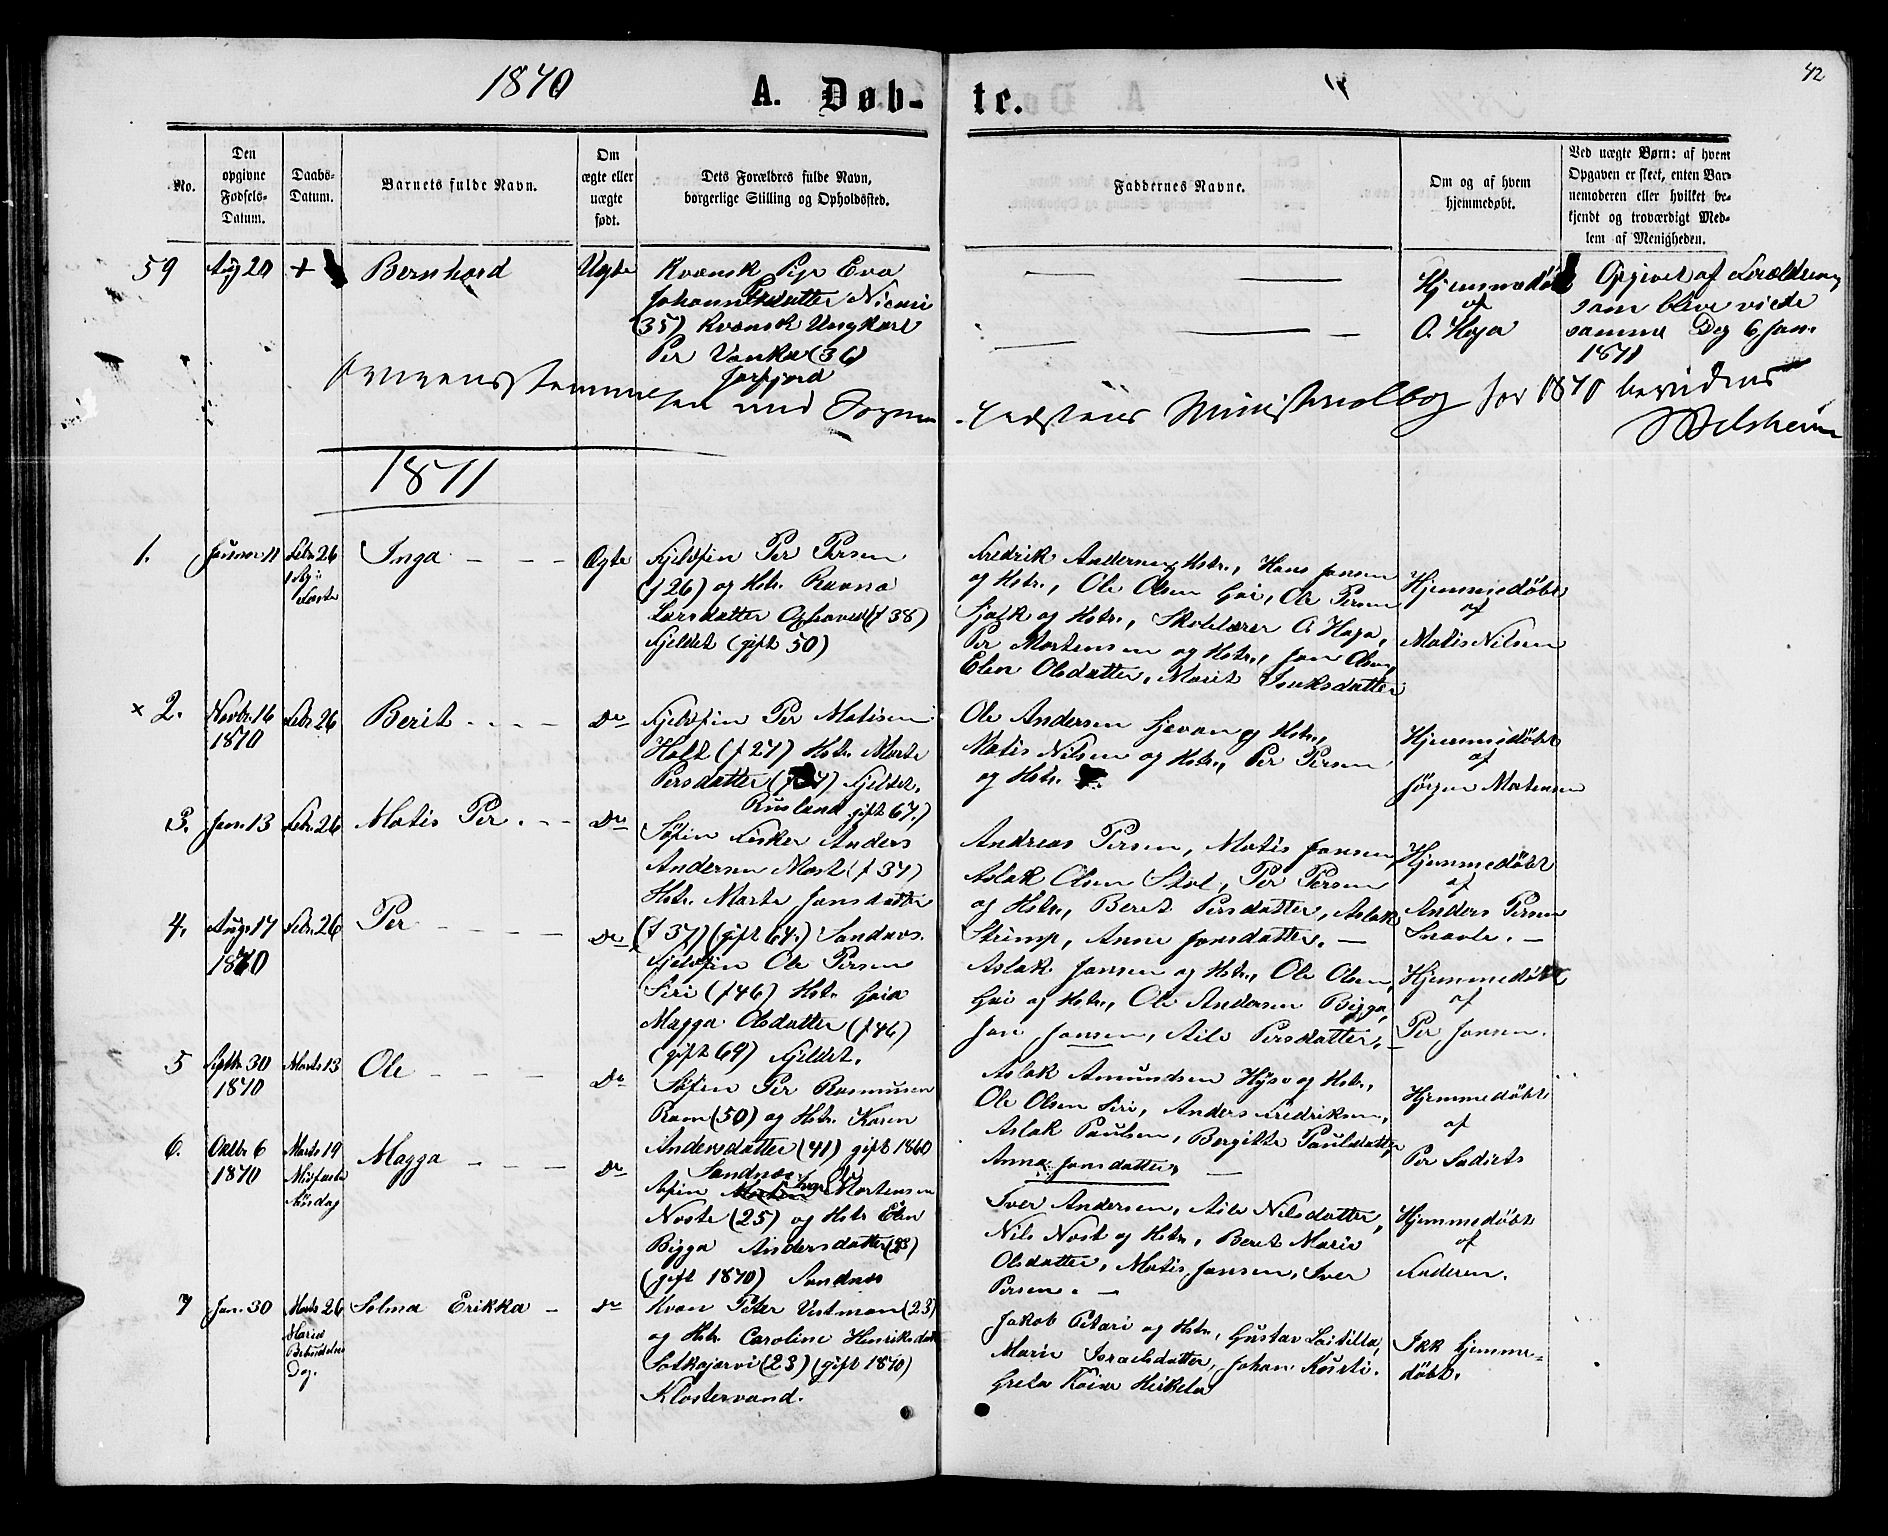 42
1870
A. Døb-
te.
No.
Den
opgivne
Fødsels-
Datum.
Daabs-
Datum.
Barnets fulde Navn.
Om
ægte eller
uægte
født.
Dets Forældres fulde Navn,
borgerlige Stilling og Opholdssted.
Faddernes Navne.
Om og af hvem
hjemmedøbt.
Ved uægte Børn: af hvem
Opgaven er skeet, enten Bar-
nemoderen eller hvilket be-
kjendt og troværdigt Med-
lem af Menigheden.
59 Aug 20 + Bernhard Uægte
Kvænsk Pige Eva
Johannesdatter
(35) Kvænsk Ungkarl
Per (36)
Jarfjord
Hjemmedøbt
af
O. Haga
Opgivet af Forældrene,
som bleve viede
samme Dag 6 Jan.
1871
med Sogne-
Ministerialbog for 1870 bevidnes
1871
1. Januar 11 Febr. 26
1 S. i
Faste
Inga - - - Ægte
Fjeldfin Per Persen
(f 26) og Hstr. Ravna
Larsdatter (f 38)
Fjeldet (gift 50)
Fredrik Andersen, Hstr., Hans Jansen
og Hstr., Ole Olsen Gai, Ole Persen
og Hstr., Skolelærer O. Haga,
Per Mortensen og Hstr., Jon Olsen,
Elen Olsdatter, Marit
Hjemmedøbt
af
Matis Nilsen
x 2. Novbr. 16
1870
Febr. 26 Berit - - - Do
Fjeldfin Per Matisen
Halt (f 27) Hstr. Marte
Persdatter Fjeldet.
Rusland gift 67.)
Ole Andersen og Hstr.,
Matis Nilsen og Hstr., Per Persen
og Hstr.
Hjemmedøbt
af
Jørgen Mortensen
3. Jan. 13 Febr. 26 Matis Per. - - Do
Søfin Fisker Anders
Andersen (f 37)
Hstr. Marte Jonsdatter
(f 37) (gift 64.) Sandnæs.
Andreas Persen, Matis Jansen,
Aslak Olsen Stol, Per Persen
og Hstr., Beret Persdatter, Aslak
Strimp, Anne Jonsdatter. -
Hjemmedøbt
af
Anders Persen
4. Aug. 17
1870
Febr. 26 Per - - - - Do
Fjeldfin Ole Persen
Siri (f 46) Hstr. Gaia
Magga Olsdatter (f 46)
(gift 69) Fjeldet.
Aslak Jansen og Hstr., Ole Olsen
Gai og Hstr., Ole Andersen Bigga,
Jon Jonsen, Aile Persdatter. -
Hjemmedøbt
af
Per Jonsen.
5 Septbr. 30
1870
Marts 13 Ole - - - Do
Søfin Per Rasmusen
(50) og Hstr. Karen
Andersdatter (41) gift 1860
Sandnæs
Aslak Amundsen og Hstr.,
Ole Olsen Siri, Anders Fredriksen,
Aslak Paulsen, Bergitte Paulsdatter,
Anna Jonsdatter, -
Hjemmedøbt
af
Per
6. Oktbr. 6
1870
Marts 19
Midfaste
Søndag
Magga - - - Do
Søfin Mortensen
Noste (25) og Hstr. Elen
Bigga Andersdatter
(gift 1870) Sandnæs
Iver Andersen, Aile Nilsdatter,
Nils Nost og Hstr., Beret Marie
Olsdatter, Matis Jansen, Iver
Persen. -
Hjemmedøbt
af
Faderen.
7 Jan. 30 Marts 26
Mariæ
Bebudelses
Dag.
Selma Erikka - Do
Kvæn Peter Vestman (23)
og Hstr. Caroline Henriksdatter
(23) (gift 1870)
Klostervand.
Jakob Petari og Hstr., Gustav Laitilla,
Marie Israelsdatter, Johan
Greta Kaisa
Ikke hjemme-
døbt.